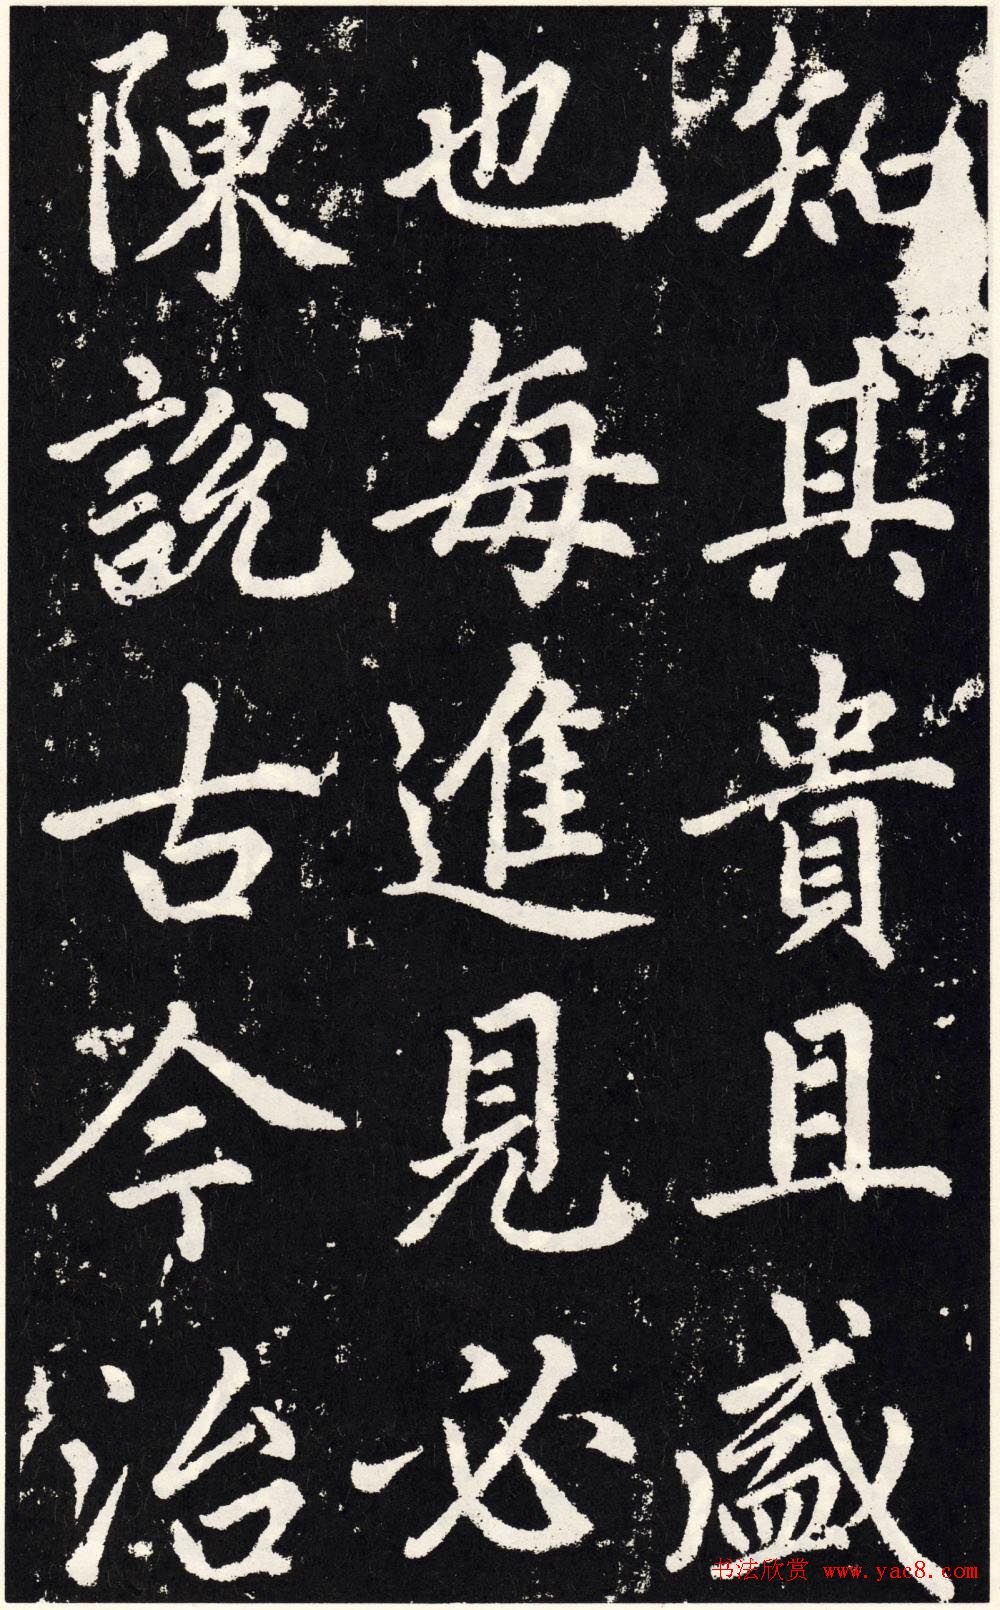 知其貴且盛
也每進見必
陳說古今治
书法欣赏 www.yac8.com